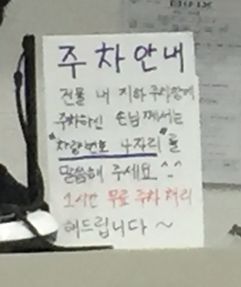 주차안내
건물 내 지하주차장에
주차하신 손님께서는
"차량번호 4자리"를
말씀해 주세요^^
1시간 무료 주차 처리
해드립니다~